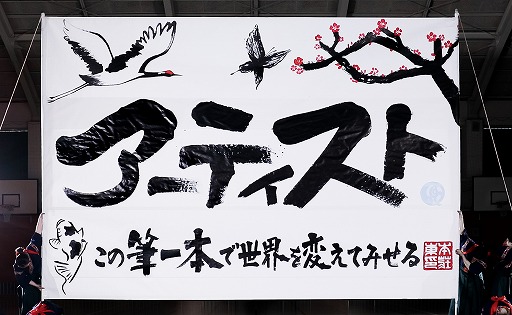 アーティスト
この筆一本で世界を変えてみせる